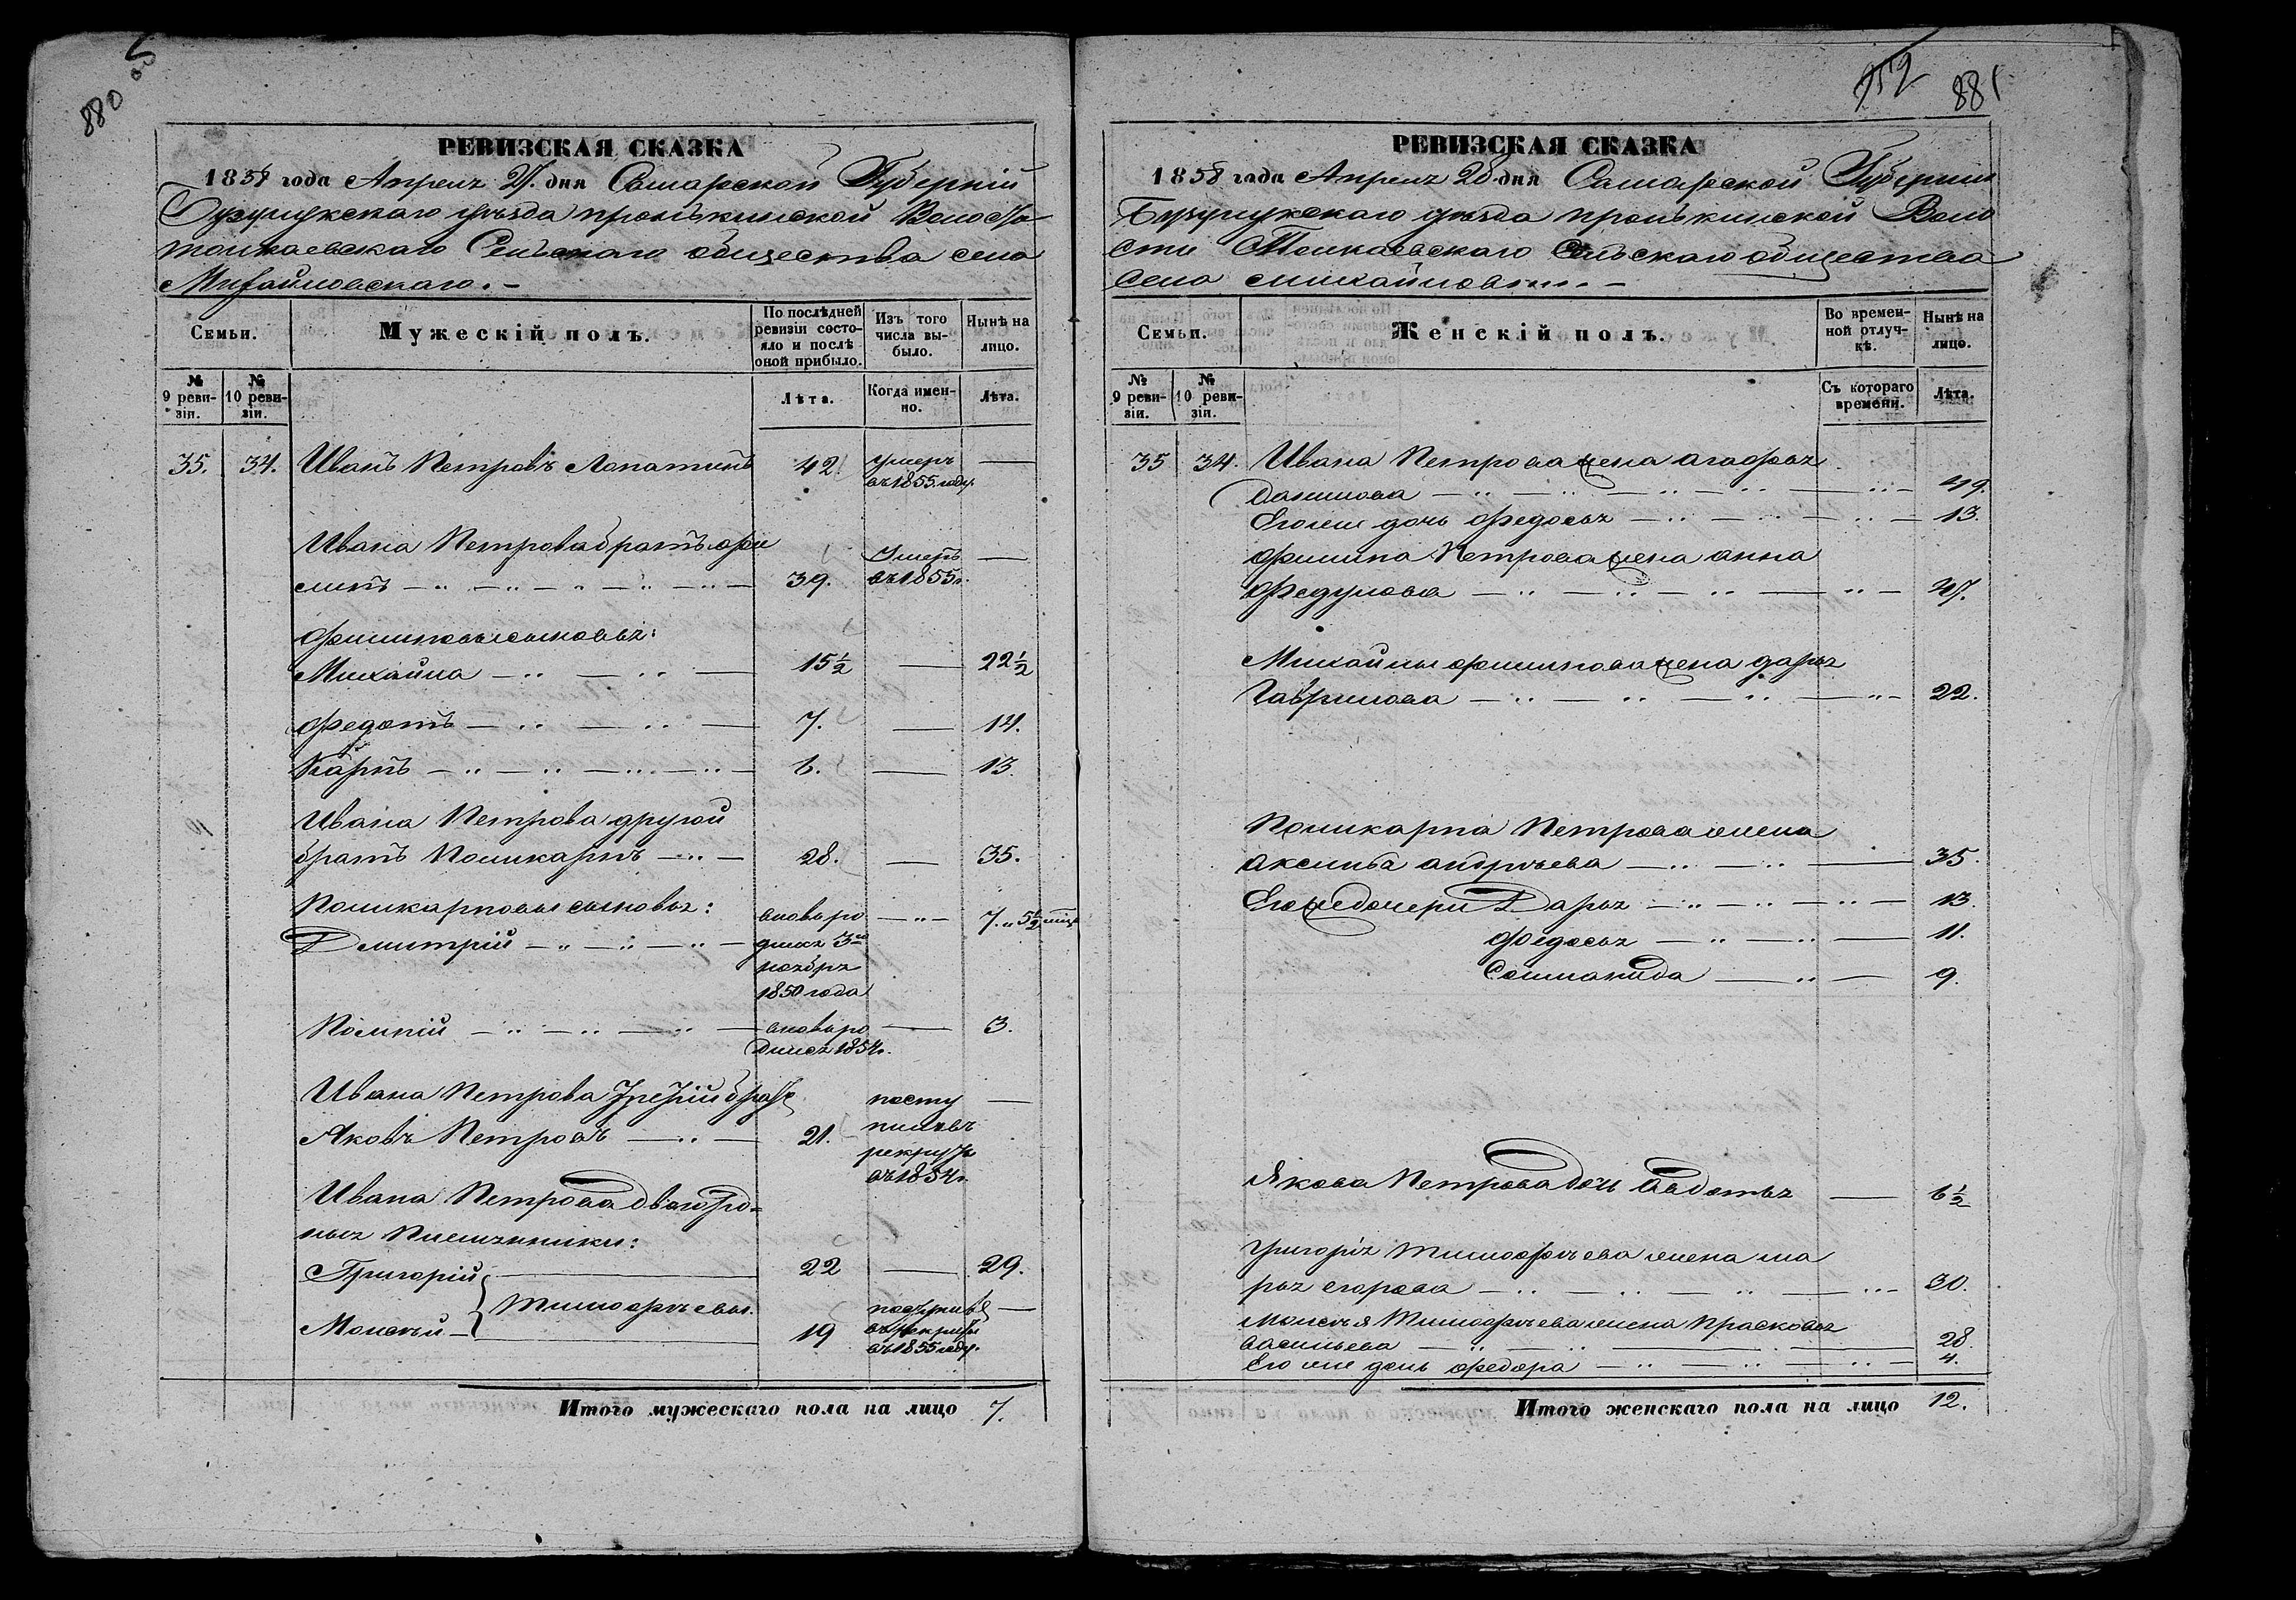 880
РЕВИЗСКАЯ СКАЗКА
1858 года Апреля дня Самарской Губерніи
Бузулукскаго уѣзда пронькинской Волости
толкаевскаго Сельскаго общества села
Михайловскаго. –
Семьи.
Мужескій полъ.
По послѣдней ревизіи состояло и послѣ оной прибыло.
Изъ того числа выбыло.
Нынѣ на лицо.
№ 9 ревизіи.
№ 10 ревизіи.
Лѣта.
Когда именно.
Лѣта.
35. 34. Иванъ Петровъ Лопатинъ 42. умеръ въ 1855 году. —
Ивана Петрова братъ фи
липъ 39. Умеръ въ 1855г. —
филиповы сыновья:
Михайла 15½ — 22½
федотъ 7. — 14.
Карпъ 6. — 13.
Ивана Петрова другой
братъ Поликарпъ 28. — 35.
Поликарповы сыновья:
Дмитрій вновь ро 7. " 5½ мѣц
дился 3го
ноября
1850 года
вновь ро — 3.
дился 1854г.
Ивана Петрова третій братъ
Яковъ Петровъ 21. посту —
пилъ въ
рекруты
въ 1854г.
Ивана Петрова двоюрод=
ныя Племянники:
Григорій 22 — 29.
Тимофѣевы.
Моисѣй 19 поступилъ —
въ рекруты
въ 1855 году.
Итого мужескаго пола на лицо 7.
952 881
РЕВИЗСКАЯ СКАЗКА
1858 года Апреля 20 дня Самарской Губерніи
Бузулукскаго уѣзда пронькинской Воло
сти Толкаевскаго Сельскаго общества
села михайловскаго. –
Семьи.
Женскій полъ.
Во временной отлучкѣ.
Нынѣ на лицо.
№ 9 ревизіи.
№ 10 ревизіи.
Съ котораго времени.
Лѣта.
35 34. Ивана Петрова жена агафья
данилова 49.
Его же дочь федосья 13.
филипа Петрова жена анна
федулова 47.
Михайлы филипова жена дарья
Гаврилова 22.
Поликарпа Петрова жена
аксинья андрѣева 35.
Его же дочери Дарья 13.
федосья 11.
Соломанида 9.
Якова Петрова дочь Авдотья — 6½
григорія тимофѣева жена ма
рья егорова 30.
моисѣя Тимофѣева жена прасковья
васильева 28.
Его же дочь федора 4.
Итого женскаго пола на лицо 12.